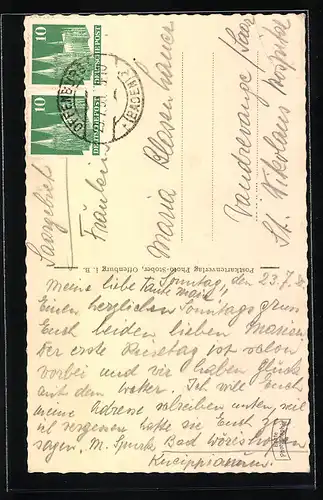 10
DEUTSCHE POST
10
DEUTSCHE POST
OFFENBURG
(BADEN)
Saargebiet
Fräulein
Maria Blessenhauer
Vaudrevange (Saar
St. Nikolaus Hospital
Postkartenverlag Photo-Stober, Offenburg i. B.
Sonntag, den 23.7.
Meine liebe Tante Marie!
Einen herzlichen Sonntagsgruss
Euch beiden lieben Marien.
Der erste Reisetag ist schon
vorbei und wir haben Glück
mit dem Wetter. Ich will Euch
meine Adresse schreiben unten, weil
ich vergessen hatte sie Euch zu
sagen. M. Bad Wörishofen
Kneippianum.